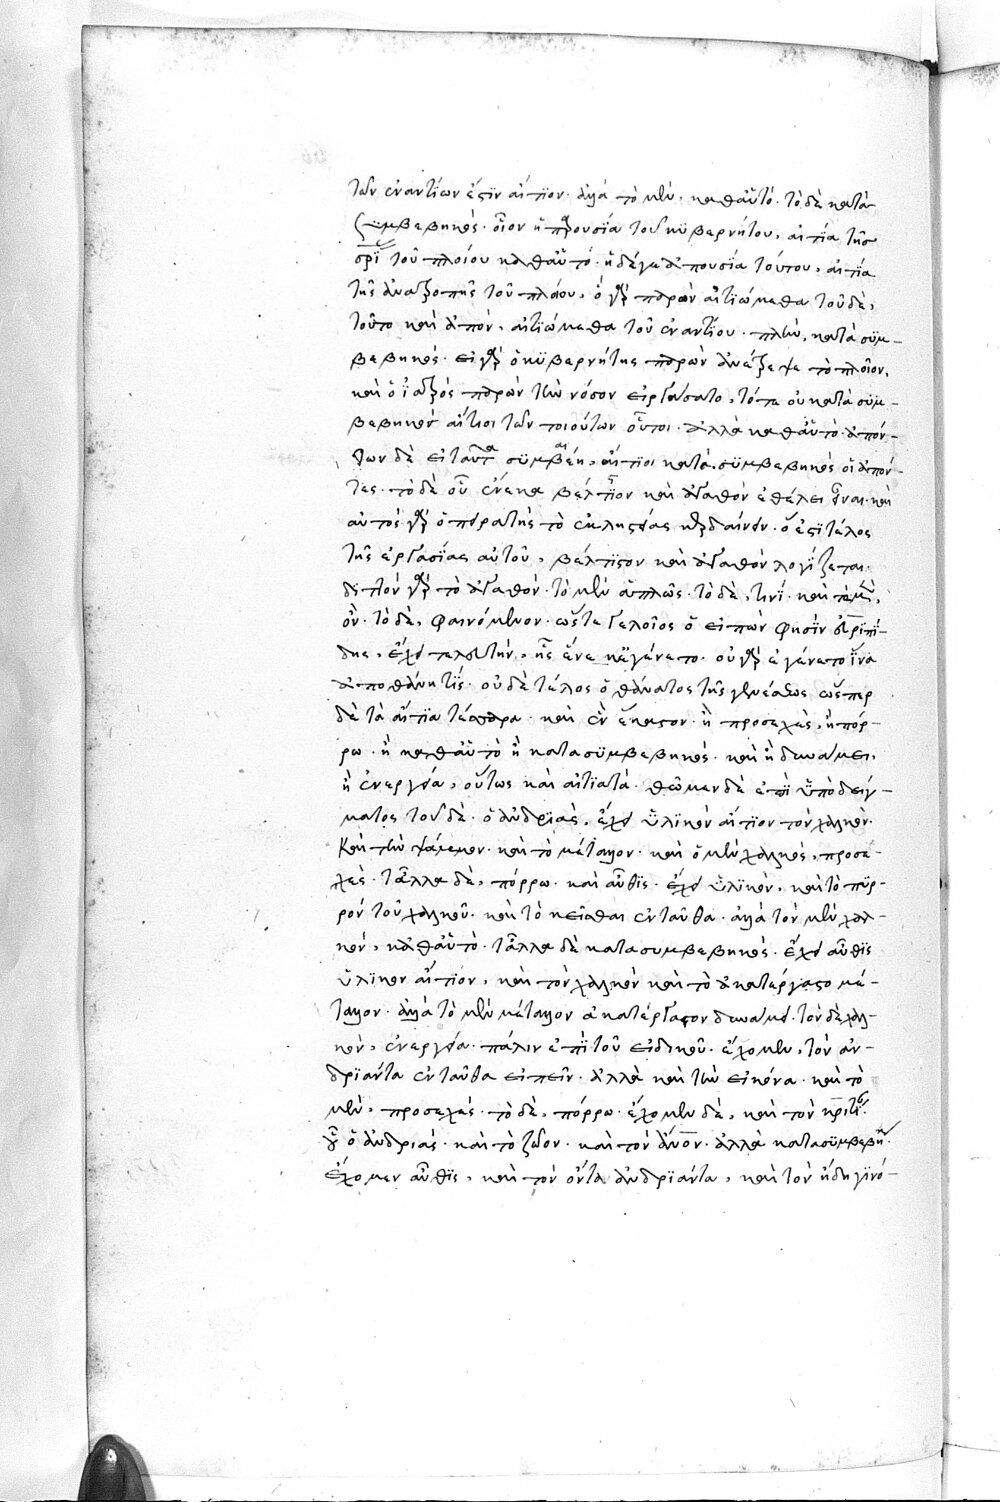 τῶν ἐναντίων ἐστὶν αἴτιον· ἀλλὰ τὸ μὲν, καθαὑτό· τὸ δὲ κατὰ
συμβεβηκός· οἷον ἡ παρουσία τοῦ κυβερνήτου, αἰτία τῆς
σρίας τοῦ πλοίου καθαὑτό· ἡ δέγε ἀπουσία τούτου, αἰτία
τῆς ἀνατροπῆς τοῦ πλοίου, ὃ γὰρ παρὸν αἰτιώμεθα τοῦδε,
τοῦτο καὶ ἀπὸν, αἰτιώμεθα τοῦ ἐναντίου· πλὴν, κατὰ συμ-
βεβηκός· εἰ γὰρ ὁ κυβερνήτης παρὼν ἀνέτρεψε τὸ πλοῖον,
καὶ ὁ ἰατρός παρὼν τὴν νόσον εἰργάσατο, τότε οὐ κατὰ συμ-
βεβηκὸς αἴτιοι τῶν τοιούτων οὗτοι· ἀλλὰ καθαὑτό· ἀπόν-
των δὲ εἰ ταῦτα συμβαίη, αἴτιοι κατὰ συμβεβηκὸς οἱ ἀπόν-
τες· τὸ δὲ οὗ ἕνεκα βέλτιον καὶ ἀγαθὸν ἐθέλει εἶναι· καὶ
αὐτὸς γὰρ ὁ πειρατὴς τὸ ἐκ λῃστείας κερδαίνειν· ὅ ἐστι τέλος
τῆς ἐργασίας αὐτοῦ, βέλτιστον καὶ ἀγαθὸν λογίζεται·
διττὸν γὰρ τὸ ἀγαθόν· τὸ μὲν ἁπλῶς· τὸ δὲ, τινί· καὶ τὸ μὲν,
ὄν· τὸ δὲ, φαινόμενον· ὥστε γελοῖος ὃ εἰπὼν φησὶν εὐριπί-
δης, ἔχει τελευτὴν, ἧς ἕνεκ' ἐγένετο· οὐ γὰρ ἐγένετο ἵνα
ἀποθάνῃ τίς· οὐδὲ τέλος ὁ θάνατος τῆς γενέσεως ὥσπερ
δὲ τὰ αἴτια τέσσαρα· καὶ ἓν ἕκαστον· ἢ προσεχὲς, ἢ πόρ-
ρω· ἢ καθαὑτὸ ἢ κατασυμβεβηκός· καὶ ἢ δυνάμει,
ἢ ἐνεργείᾳ, οὕτως καὶ αἰτιατά· θῶμεν δὲ ἐπὶ ὑποδείγ-
ματος τοῦδε· ὁ ἀνδριὰς, ἔχει ὑλικὸν αἴτιον τὸν χαλκόν·
καὶ τὴν· καὶ τὸ μέταλλον· καὶ ὁ μὲν χαλκὸς, προσε-
χές· τἄλλα δὲ, πόρρω· καὶ αὖθις· ἔχει ὑλικὸν, καὶ τὸ πυρ-
ρὸν τοῦ χαλκοῦ· καὶ τὸ κεῖσθαι ἐνταῦθα· ἀλλὰ τὸν μὲν χαλ-
κόν, καθαὑτό· τἄλλα δὲ κατασυμβεβηκός· ἔχει αὖθις
ὑλικὸν αἴτιον, καὶ τὸν χαλκὸν καὶ τὸ ἀκατέργαστο μέ-
ταλλον· ἀλλὰ τὸ μὲν μέταλλον ἀκατέργαστον δυνάμει· τὸν δὲ χαλ-
κόν, ἐνεργείᾳ· πάλιν ἐπὶ τοῦ εἰδικοῦ· ἔχομεν, τὸν ἀν-
δριάντα ἐνταῦθα εἰπεῖν· ἀλλὰ καὶ τὴν εἰκόνα· καὶ τὸ
μὲν, προσεχές· τὸ δὲ, πόρρω· ἔχομεν δὲ, καὶ τὸν
οὗ ὁ ἀνδριάς· καὶ τὸ ζῶον· καὶ τὸν ἄνον· ἀλλὰ κατασυμβεβη
ἔχομεν αὖθις, καὶ τὸν ὄντα ἀνδριάντα, καὶ τὸν ἤδη γινό-